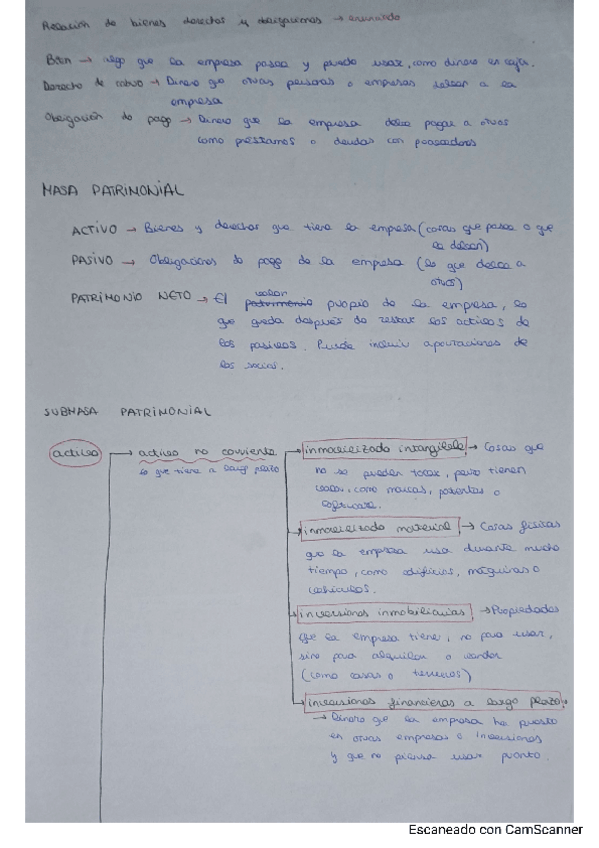 Relación de bienes derechos y obligaciones → enunciado
Bien → Algo que la empresa posee y puede usar, como dinero en caja.
Derecho de cobro → Dinero que otras personas o empresas deben a la
empresa
Obligación de pago → Dinero que la empresa debe pagar a otros
como préstamos o deudas con proveedores
MASA PATRIMONIAL
ACTIVO → Bienes y derechos que tiene la empresa (cosas que posee o que
le deben)
PASIVO → Obligaciones de pago de la empresa (lo que debe a
otros)
valor
PATRIMONIO NETO → El patrimonio propio de la empresa, lo
que queda después de restar los activos de
los pasivos. Puede incluir aportaciones de
los socios.
SUBMASA PATRIMONIAL
activo → activo no corriente → inmovilizado intangible → Cosas que
lo que tiene a largo plazo
no se pueden tocar, pero tienen
valor, como marcas, patentes o
software.
inmovilizado material → Cosas físicas
que la empresa usa durante mucho
tiempo, como edificios, máquinas o
vehículos.
inversiones inmobiliarias → Propiedades
que la empresa tiene, no para usar,
sino para alquilar o vender
(como casas o terrenos)
inversiones financieras a largo plazo
→ Dinero que la empresa ha puesto
en otras empresas o inversiones
y que no piensa usar pronto.
Escaneado con CamScanner